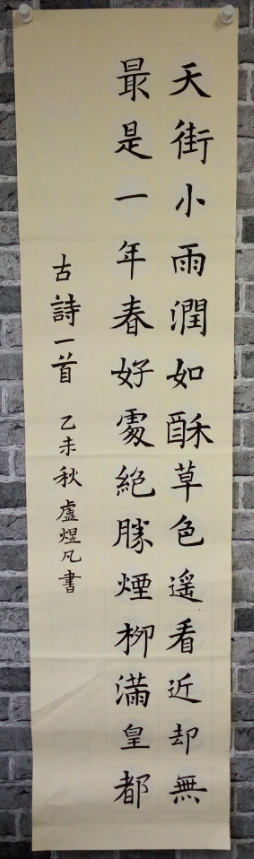 天街小雨潤如酥草色遥看近却無
最是一年春好處絕勝煙柳滿皇都
古詩一首 乙未秋盧煜凡書